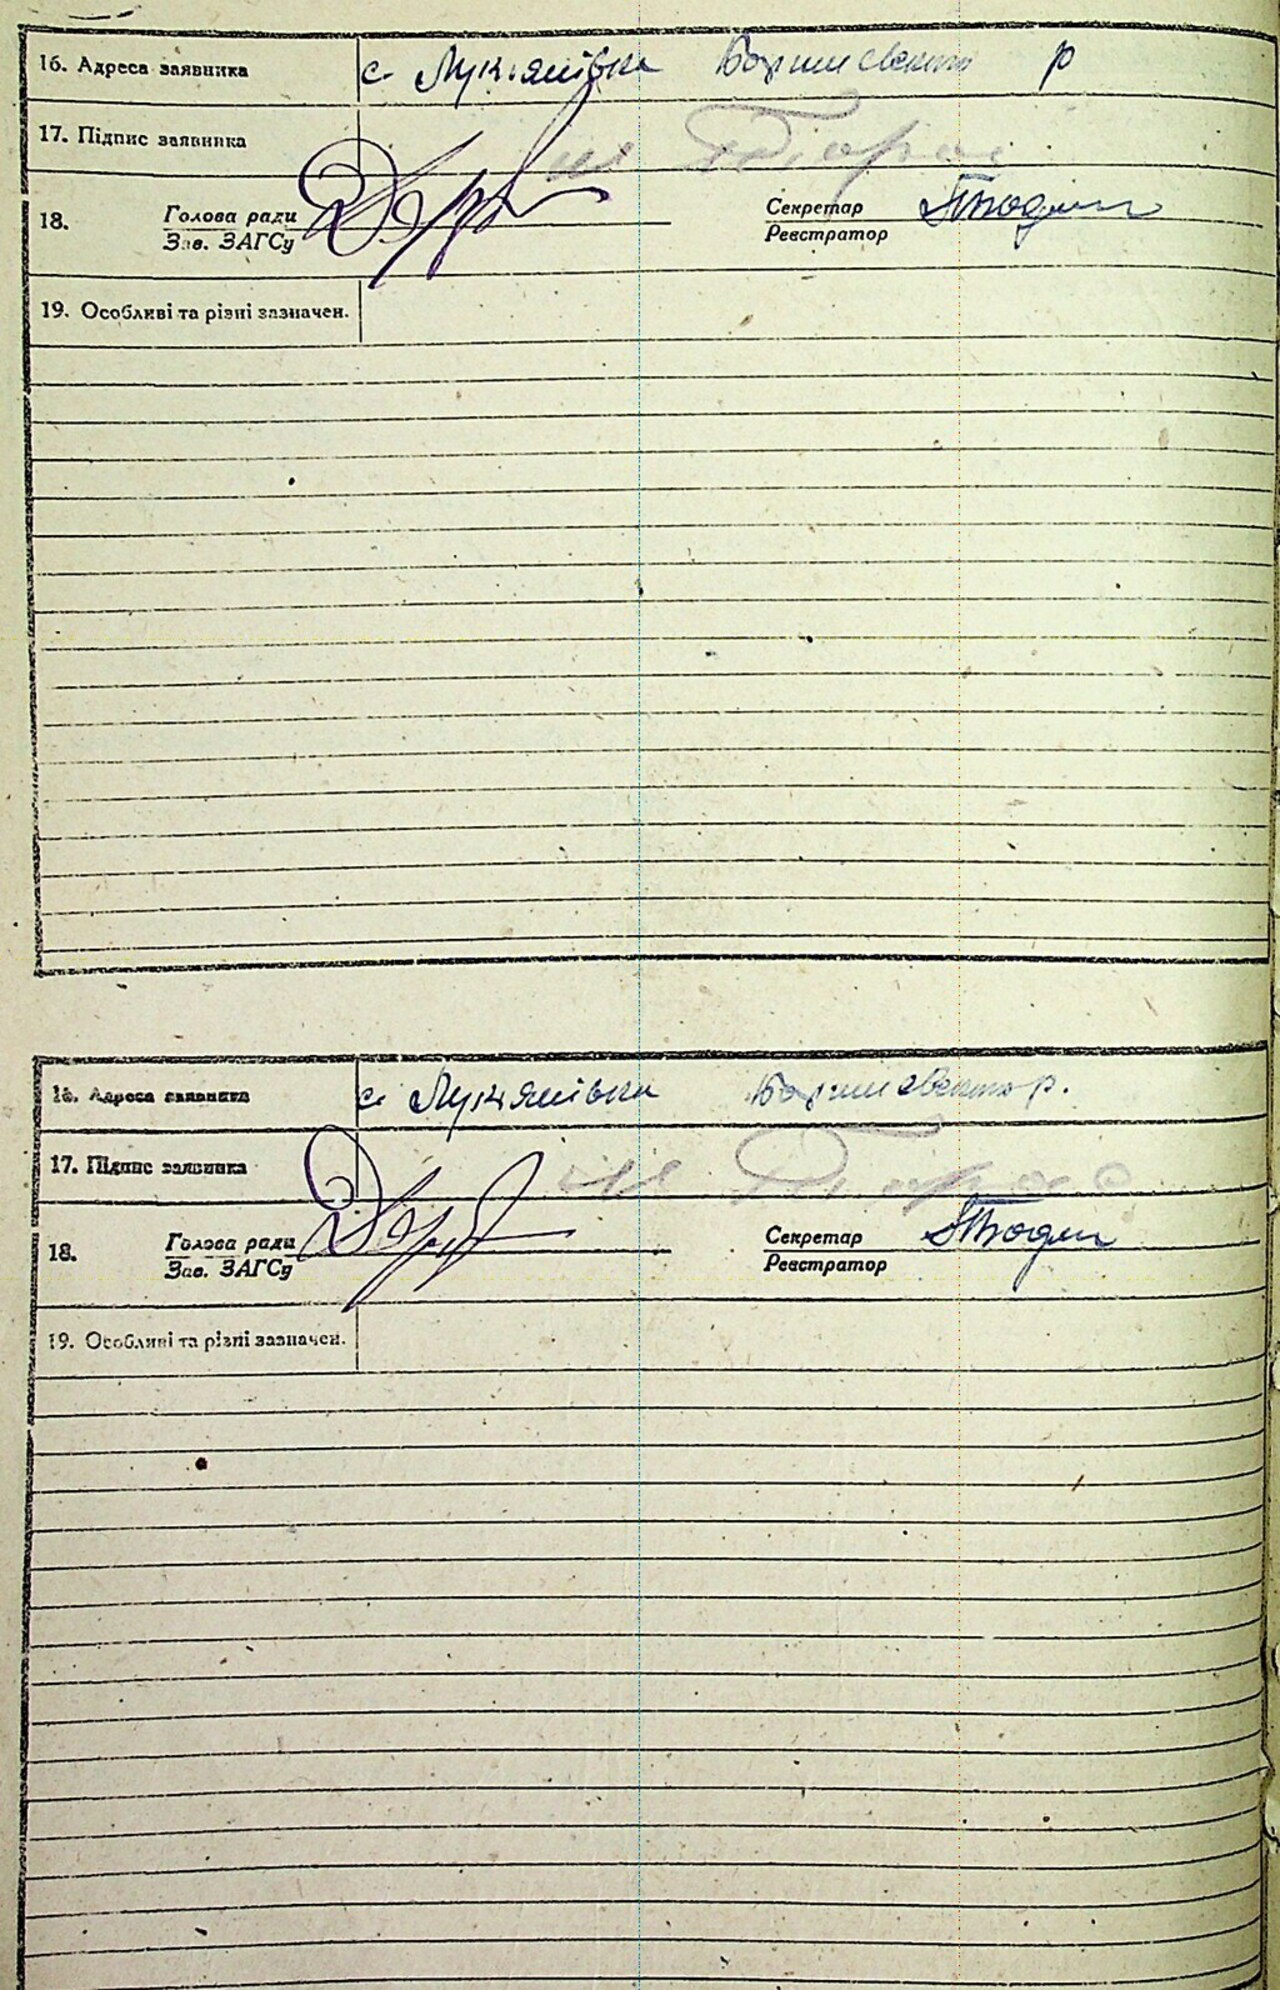 16. Адреса заявника с. Лукянівка Баришевського р
17. Підпис заявника
18. Голова ради Секретар
Зав. ЗАГСу Реєстратор
19. Особливі та різні зазначен.
16. Адреса заявника с. Лукянівка Баришевського р.
17. Підпис заявника
18. Голова ради Секретар
Зав. ЗАГСу Реєстратор
19. Особливі та різні зазначен.